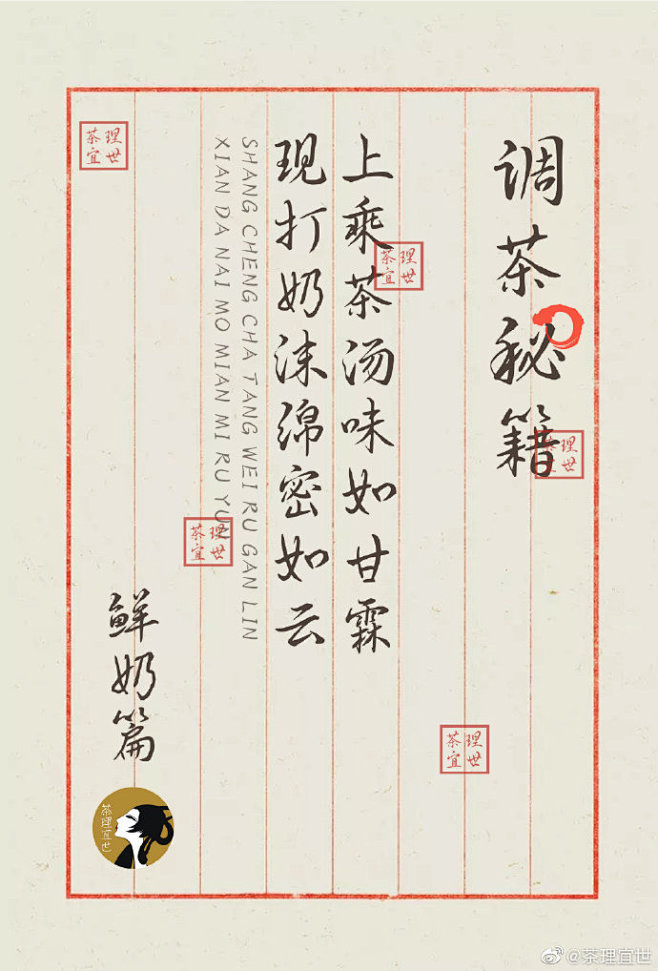 调茶秘籍
上乘茶汤味如甘霖
现打奶沫绵密如云
SHANG CHENG CHA TANG WEI RU GAN LIN
XIAN DA NAI MO MIAN MI RU YUN
鲜奶篇
茶理宜世
茶理宜世
茶理宜世
茶理宜世
茶理宜世
茶理宜世
@茶理宜世